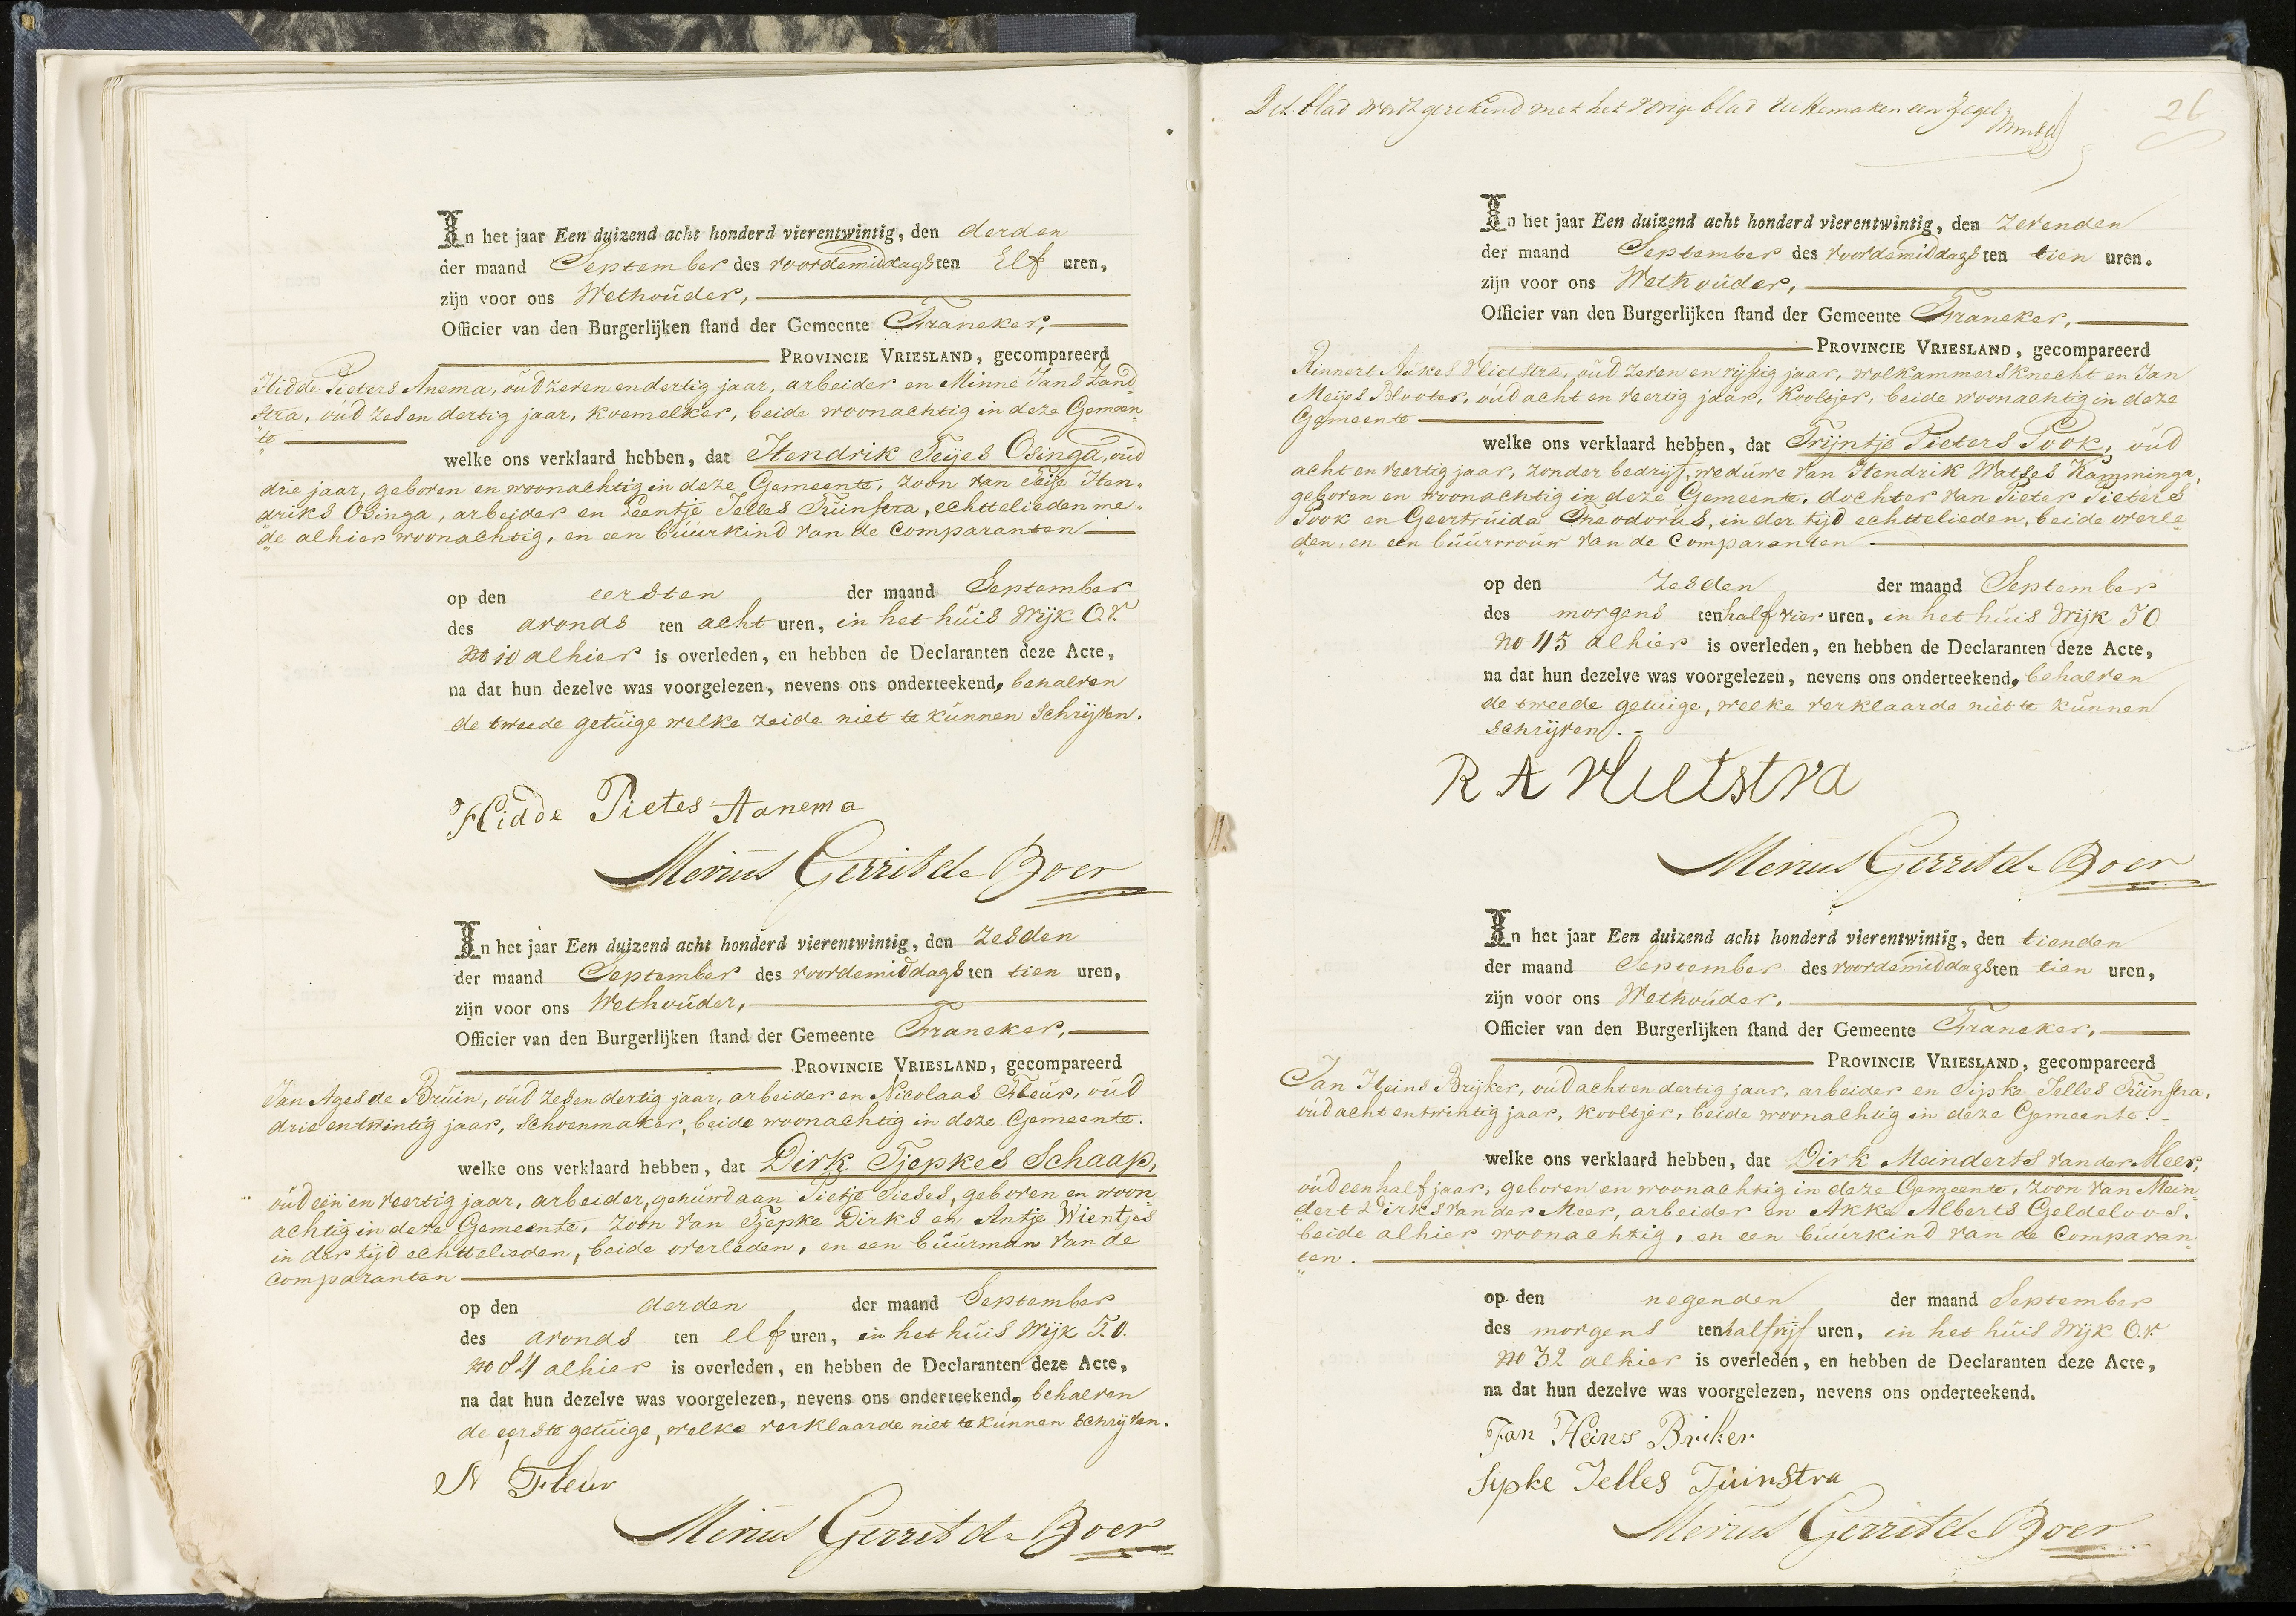 In het jaar Een duizend acht honderd vierentwintig, den derden
der maand September des voordemiddags ten Elf uren,
zijn voor ons Wethouder,
Officier van den Burgerlijken stand der Gemeente Franeker,
PROVINCIE VRIESLAND, gecompareerd
Hidde Pieters Anema, oud zeven en dertig jaar, arbeider en Minne Jans Zand„
stra, oud zes en dertig jaar, koemelker, beide woonachtig in deze Gemeen„
„te
welke ons verklaard hebben, dat Hendrik Feijes Osinga, oud
drie jaar, geboren en woonachtig in deze Gemeente, zoon van Feije Hen„
driks Osinga, arbeider en Leentje Jelles Tuinstra, echtelieden me„
„de alhier woonachtig, en een buurkind van de Comparanten
op den eersten der maand September
des avonds ten acht uren, in het huis Wijk O.V.
no 10 alhier is overleden, en hebben de Declaranten deze Acte,
na dat hun dezelve was voorgelezen, nevens ons onderteekend, behalven
de tweede getuige welke zeide niet te kunnen schrijven.
Hidde Pietes Aanema
Merius Gerrit de Boer
In het jaar Een duizend acht honderd vierentwintig, den zesden
der maand September des voordemiddags ten tien uren,
zijn voor ons Wethouder,
Officier van den Burgerlijken stand der Gemeente Franeker,
PROVINCIE VRIESLAND, gecompareerd
Jan Ages de Bruin, oud zes en dertig jaar, arbeider en Nicolaas Fleur, oud
drie en twintig jaar, schoenmaker, beide woonachtig in deze Gemeente.
welke ons verklaard hebben, dat Dirk Tjepkes Schaap,
oud een en veertig jaar, arbeider, gehuwd aan Pietje Pieses, geboren en woon
achtig in deze Gemeente, zoon van Tjepke Dirks en Antje Wientjes
in der tijd echttelieden, beide overleden, en een buurman van de
comparanten
op den derden der maand September
des avonds ten elf uren, in het huis Wijk T.O.
no 84 alhier is overleden, en hebben de Declaranten deze Acte,
na dat hun dezelve was voorgelezen, nevens ons onderteekend, behalven
de eerste getuige, welke verklaarde niet te kunnen schrijven.
N Fleur
Merius Gerrit de Boer
Dit blad wordt gerekend met het vorige blad uittemaken een Zegel
26
In het jaar Een duizend acht honderd vierentwintig, den zevenden
der maand September des voordemiddags ten tien uren.
zijn voor ons Wethouder,
Officier van den Burgerlijken stand der Gemeente Franeker,
PROVINCIE VRIESLAND, gecompareerd
Rinnert Aukes Vlietstra, oud zeven en vijftig jaar, wolkammersknecht en Jan
Meijes Blooter, oud acht en veertig jaar, Kooltjer, beide woonachtig in deze
Gemeente
welke ons verklaard hebben, dat Trijntje Pieters Pook, oud
acht en veertig jaar, zonder bedrijf, weduwe van Hendrik Watses Kamminga,
geboren en woonachtig in deze Gemeente, dochter van Pieter Pieters
Pook en Geertruida Theodorus, in der tijd echttelieden, beide overle„
„den, en een buurvrouw van de Comparanten
op den zesden der maand September
des morgens ten half vier uren, in het huis Wijk TO
no 45 alhier is overleden, en hebben de Declaranten deze Acte,
na dat hun dezelve was voorgelezen, nevens ons onderteekend, behalven
de tweede getuige, welke verklaarde niet te kunnen
schrijven.
R A Vlietstra
Merius Gerrit de Boer
In het jaar Een duizend acht honderd vierentwintig, den tienden
der maand September des voordemiddags ten tien uren,
zijn voor ons Wethouder,
Officier van den Burgerlijken stand der Gemeente Franeker,
PROVINCIE VRIESLAND, gecompareerd
Jan Heins Brijker, oud acht en dertig jaar, arbeider en Sipke Jelles Tuinstra,
oud acht en twintig jaar, kooltjer, beide woonachtig in deze Gemeente.
welke ons verklaard hebben, dat Dirk Meinderts van der Meer,
oud een half jaar, geboren en woonachtig in deze Gemeente, zoon van Mein„
„dert Dirks van der Meer, arbeider en Akke Alberts Geldeloos,
beide alhier woonachtig, en een buurkind van de Comparan„
„ten.
op den negenden der maand September
des morgens ten half vijf uren, in het huis Wijk O.V.
no 32 alhier is overleden, en hebben de Declaranten deze Acte,
na dat hun dezelve was voorgelezen, nevens ons onderteekend.
Jan Heins Briker
Sipke Jelles Tuinstra
Merius Gerrit de Boer